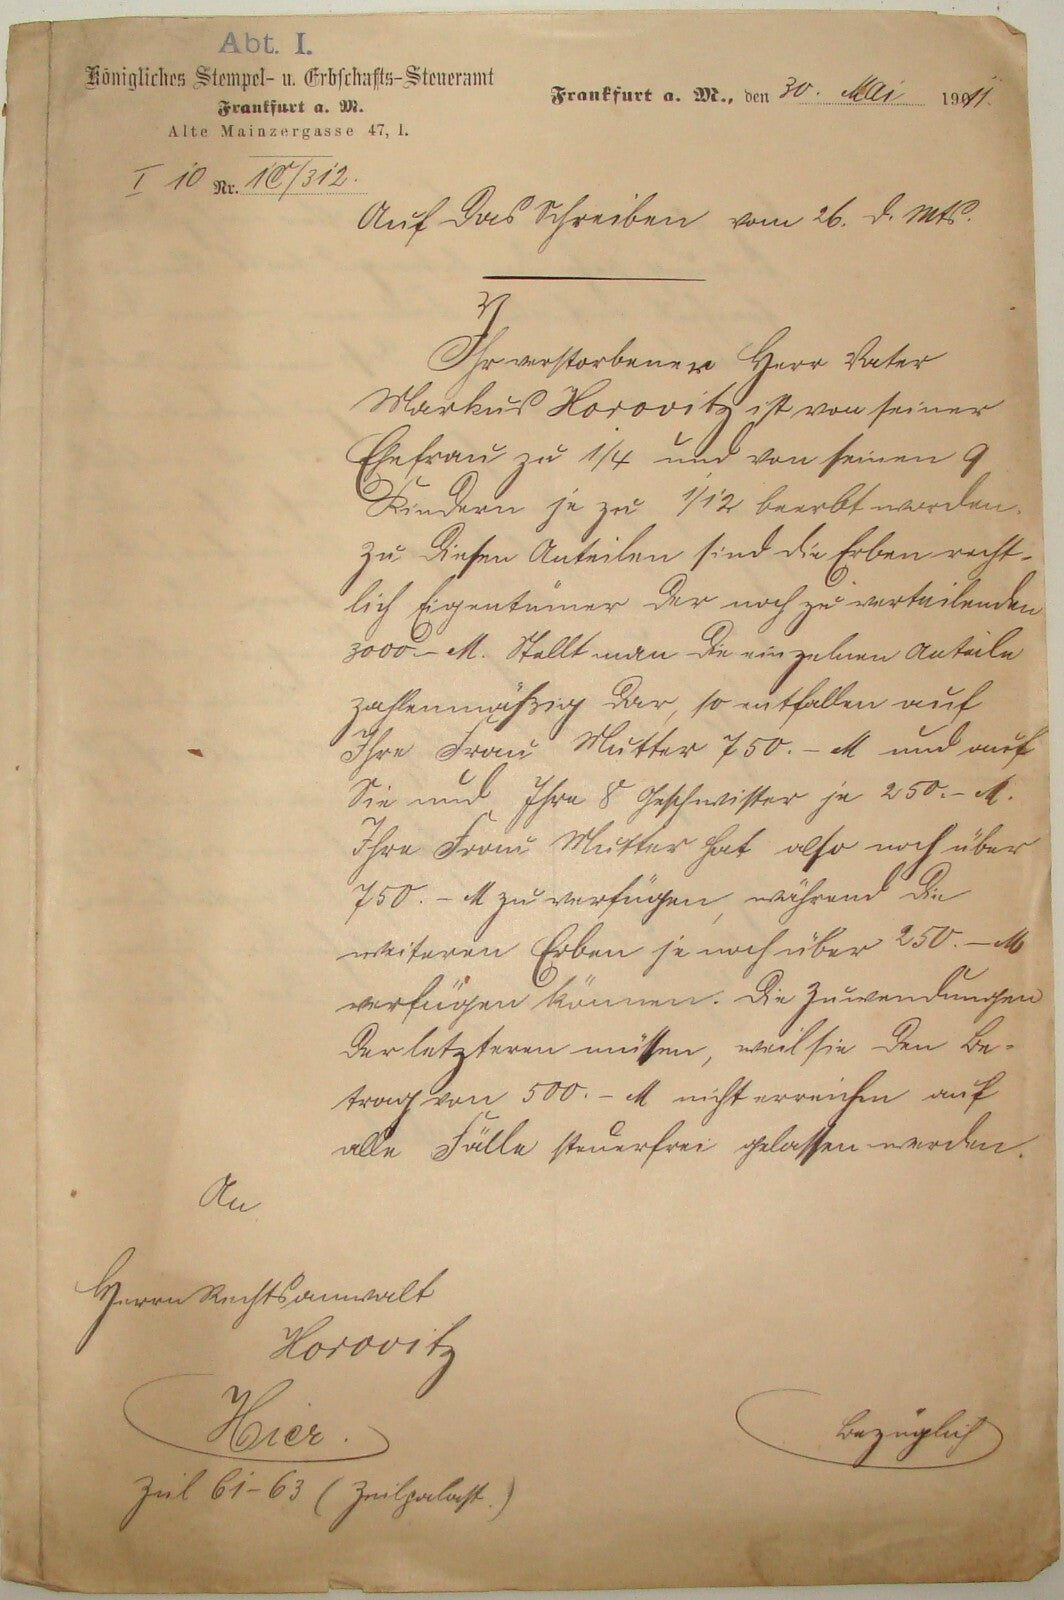 Abt. I.
Königliches Stempel- u. Erbschafts-Steueramt
Frankfurt a. M.
Alte Mainzergasse 47, I.
Frankfurt a. M., den 30. Mai 1911.
I 10 Nr. 10/312.
Auf das Schreiben vom 26. d. Mts.
Ihr verstorbener Herr Vater
Markus Horovitz ist von seiner
Ehefrau zu 1/4 und von seinen 9
Kindern je zu 1/12 beerbt worden.
Zu diesen Anteilen sind die Erben recht-
lich Eigentümer der noch zu verteilenden
3000 – M. Stellt man die einzelnen Anteile
zahlenmäßig dar, so entfallen auf
Ihre Frau Mutter 750. – M und auf
Sie und Ihre 8 Geschwister je 250. – M.
Ihre Frau Mutter hat also noch über
750. – M zu verfügen, während die
weiteren Erben je noch über 250. – M
verfügen können. Die Zuwendungen
der letzteren müssen, weil sie den Be-
trag von 500. – M nicht erreichen auf
alle Fälle steuerfrei gelassen werden.
An
Herrn Rechtsanwalt
Horovitz
Hier.
Zeil 61-63 (Zeilpalast.)